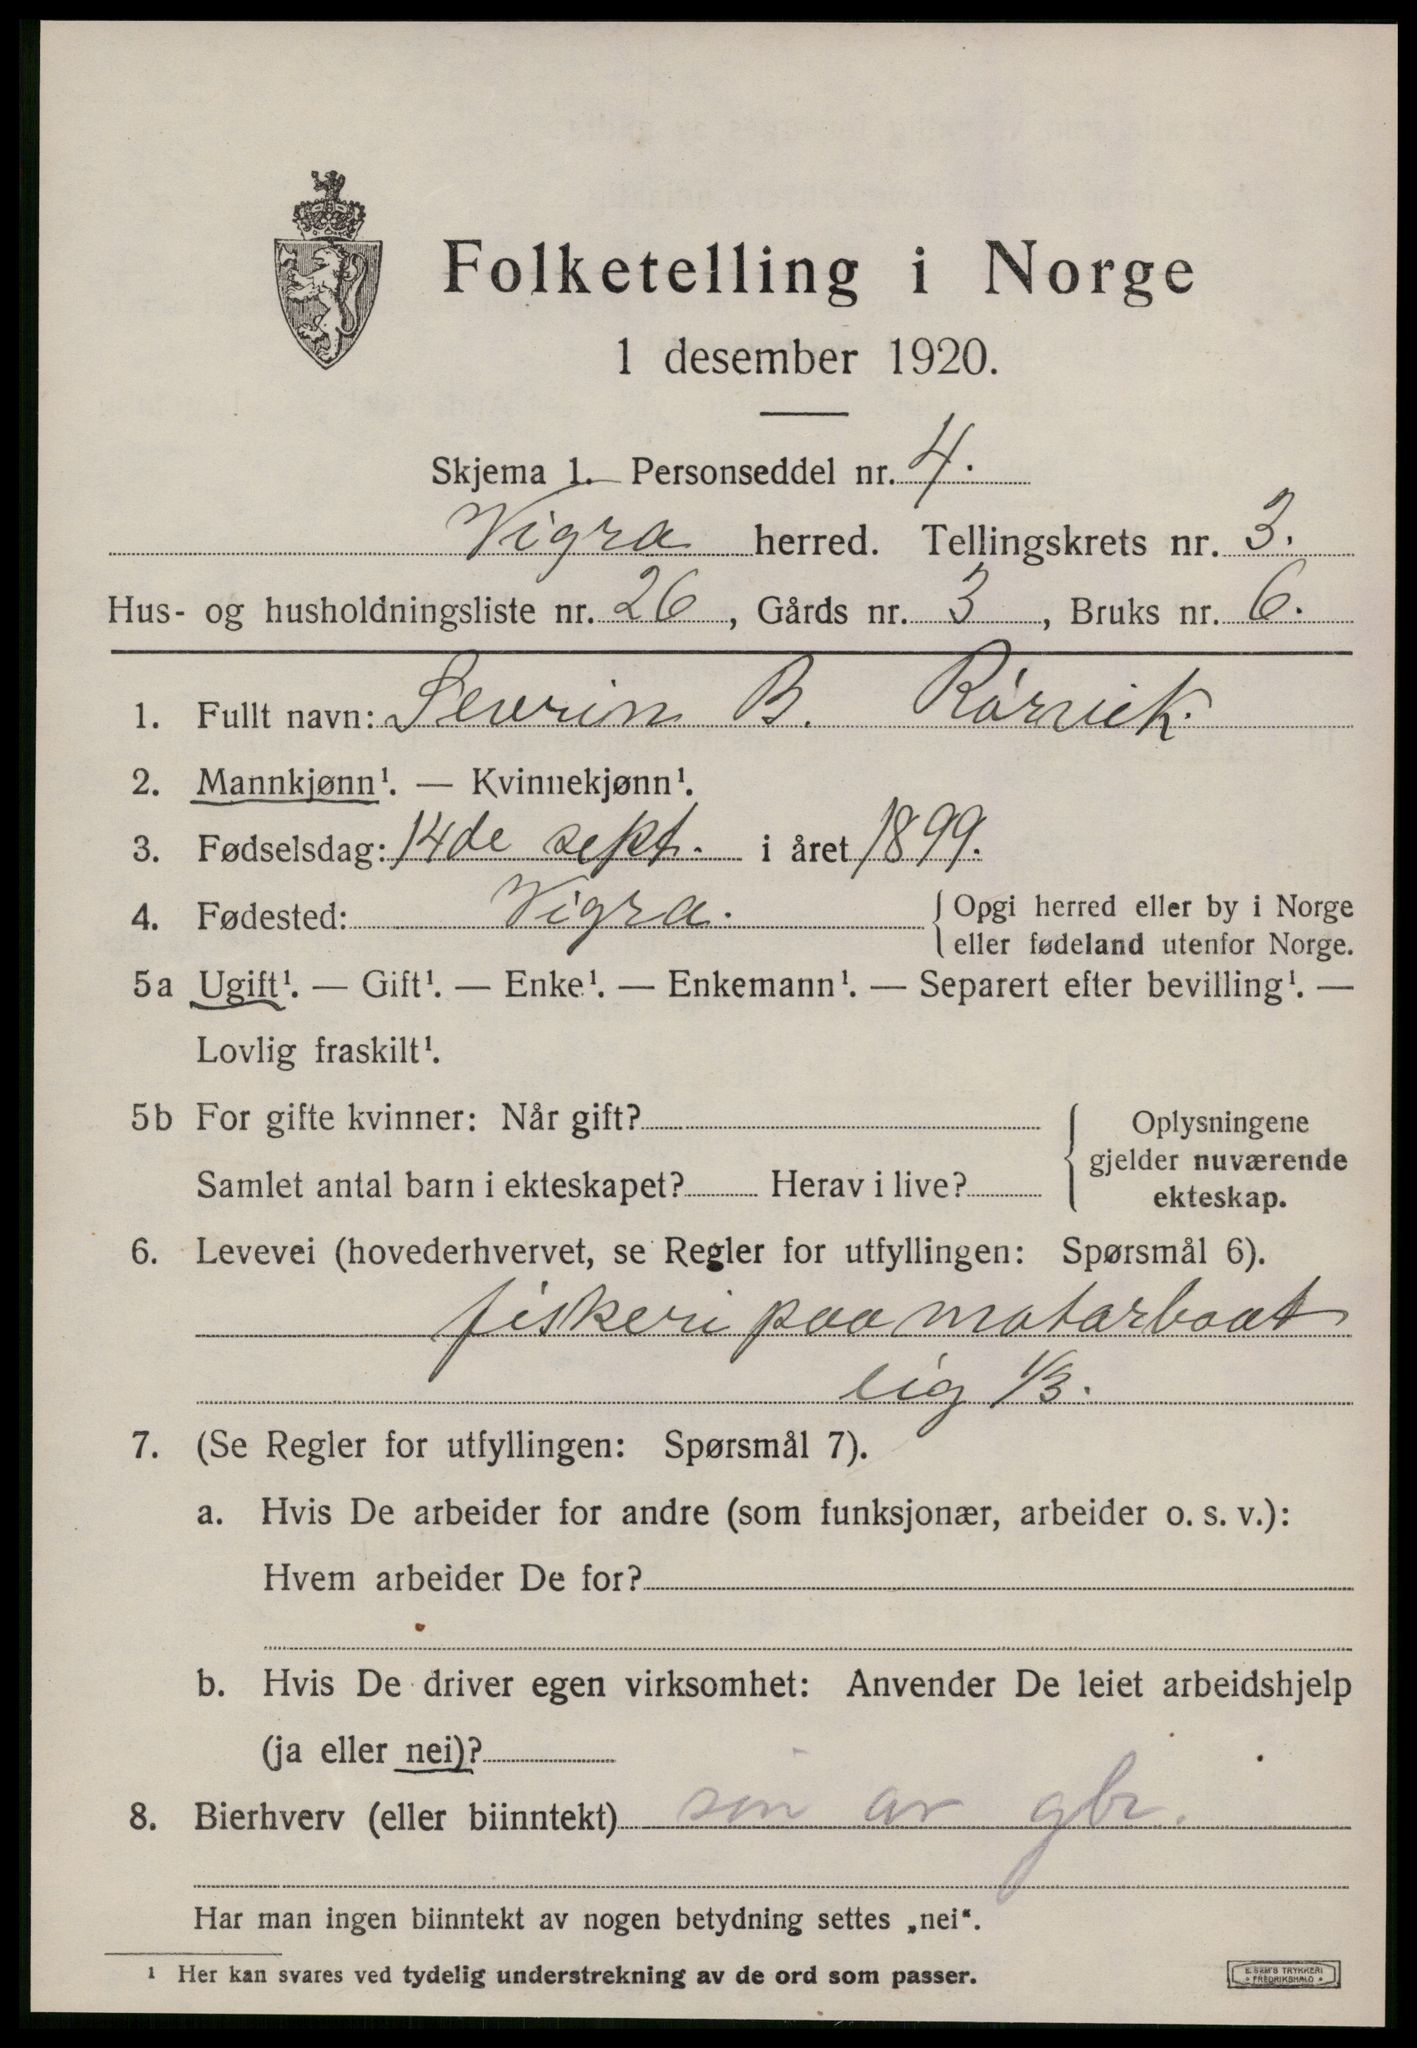 Folketelling i Norge
1 desember 1920.
Skjema 1. Personseddel nr. 4.
Vigra herred. Tellingskrets nr. 3.
Hus- og husholdningsliste nr. 26, Gårds nr. 3, Bruks nr. 6.
1. Fullt navn: Severin B. Rörvik.
2. Mannkjønn¹. — Kvinnekjønn¹.
3. Fødselsdag: 14de sept. i året 1899.
4. Fødested: Vigra. { Opgi herred eller by i Norge
eller fødeland utenfor Norge.
5a Ugift¹. — Gift¹. — Enke¹. — Enkemann¹. — Separert efter bevilling¹. —
Lovlig fraskilt¹.
5b For gifte kvinner: Når gift? { Oplysningene
gjelder nuværende
Samlet antal barn i ekteskapet? Herav i live?
ekteskap.
6. Levevei (hovederhvervet, se Regler for utfyllingen: Spørsmål 6).
fiskeri paa motorbaat
lig 1/3.
7. (Se Regler for utfyllingen: Spørsmål 7).
a. Hvis De arbeider for andre (som funksjonær, arbeider o. s. v.):
Hvem arbeider De for?
b. Hvis De driver egen virksomhet: Anvender De leiet arbeidshjelp
(ja eller nei)?
8. Bierhverv (eller biinntekt) sön av gbr.
Har man ingen biinntekt av nogen betydning settes „nei“.
¹ Her kan svares ved tydelig understrekning av de ord som passer.
E. SEM'S TRYKKERI
• FREDRIKSHALD •